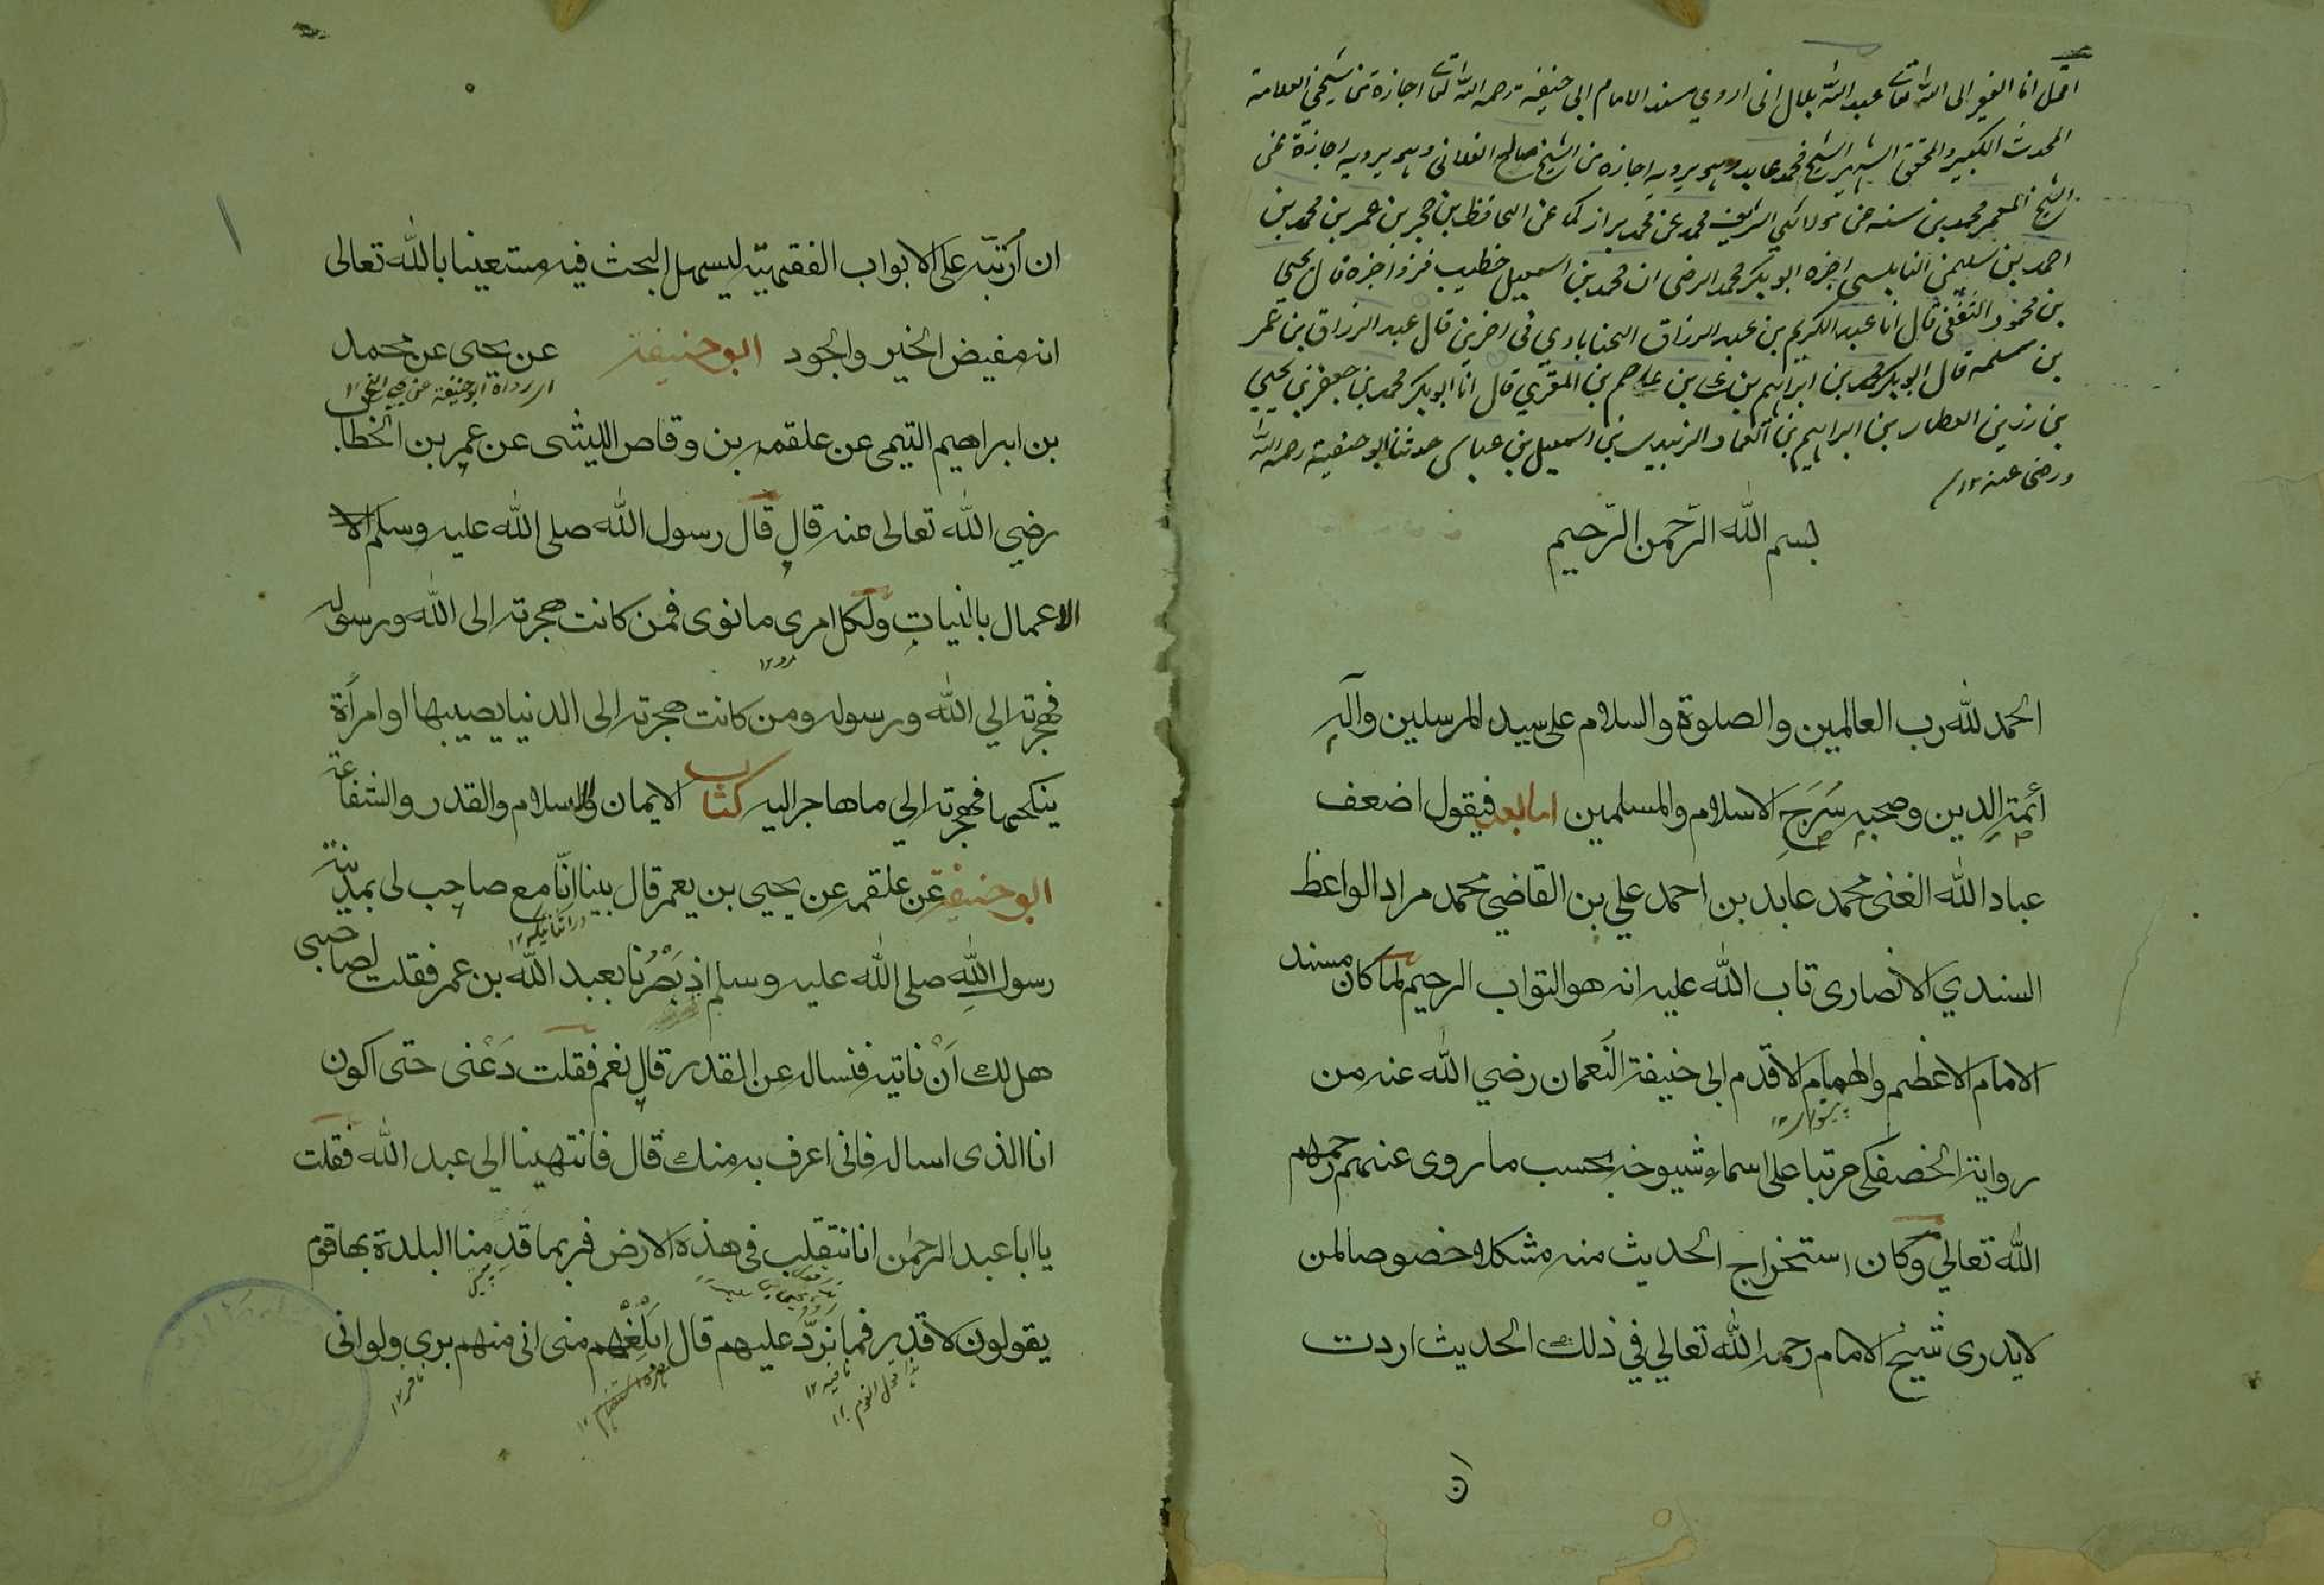 اقول انا الفقير الى الله تعالى عبد الله بلال انى اروي مسند الامام ابى حنيفة رحمه الله تعالى اجازة من شيخي العلامة
المحدث الكبير والمحقق الشهير الشيخ محمد عابد وهو يرويه اجازة من الشيخ صالح الفلانى وهو يرويه اجازة عن
الشيخ المعمر محمد بن سنه عن مولائي الشريف محمد عن محمد بن اركماش عن الحافظ بن حجر بن عمر بن محمد بن
احمد بن سليمن النابلسى اخبره ابو بكر محمد الرضى ان محمد بن اسمعيل خطيب اخبره قال يحيى
بن محمود الثقفى قال انا عبد الكريم بن عبد الرزاق فى اخرين قال عبد الرزاق بن عمر
بن سلمه قال ابو بكر محمد بن ابراهيم بن على بن عاصم بن المقري قال انا ابو بكر محمد بن جعفر بن يحيى
بن رزين العطار بن ابراهيم بن العلاء الزبيدى بن اسمعيل بن عياس حدثنا ابو حنيفة رحمه الله
ورضى عنه ١٢
بسم الله الرّحمن الرّحيم
الحمد لله رب العالمين والصلوة والسلام على سيد المرسلين وآله
أئمة الدين وصحبه سُرَجِ الاسلام والمسلمين اما بعد فيقول اضعف
عباد الله الغنى محمد عابد بن احمد علي بن القاضي محمد مراد الواعظ
السندي الانصارى تاب الله عليه انه هو التواب الرحيم لما كان مسند
الامام الاعظم والهمام الاقدم ابى حنيفة النعمان رضي الله عنه من
رواية الخصفكى مرتبا على اسماء شيوخه بحسب ما روى عنهم رحمهم
الله تعالي وكان استخراج الحديث منه مشكلا خصوصا لمن
لايدرى شيخ الامام رحمه الله تعالي في ذلك الحديث اردت
ان
ان أرتبه على الابواب الفقهيه ليسهل البحث فيه مستعينا بالله تعالى
انه مفيض الخير والجود ابو حنيفة عن يحيى عن محمد
بن ابراهيم التيمى عن علقمه بن وقاص الليثى عن عمر بن الخطاب
رضي الله تعالى عنه قال قال رسول الله صلى الله عليه وسلم
الاعمال بالنيات ولكل امرى ما نوى فمن كانت هجرته الى الله ورسوله
فهجرته الي الله ورسوله ومن كانت هجرته الى الدنيا يصيبها او امرأة
ينكحها فهجرته الي ما هاجر اليه كتاب الايمان والاسلام والقدر والشفاعة
ابو حنيفة عن علقمه عن يحيى بن يعمر قال بينا انا مع صاحب لى بمدينة
رسول الله صلى الله عليه وسلم اذ بَصُرنا بعبد الله بن عمر فقلت لصاحبى
هل لك اَنْ ناتيه فنساله عن القدر قال نعم فقلت دَعْنى حتى اكون
انا الذى اساله فانى اعرف به منك قال فانتهينا الي عبد الله فقلت
يا ابا عبد الرحمن انا نتقلب فى هذه الارض فربما قدِمنا البلدة بها قوم
يقولون لا قدر فما نردّ عليهم قال ابلغهم منى انى منهم برى ولو انى